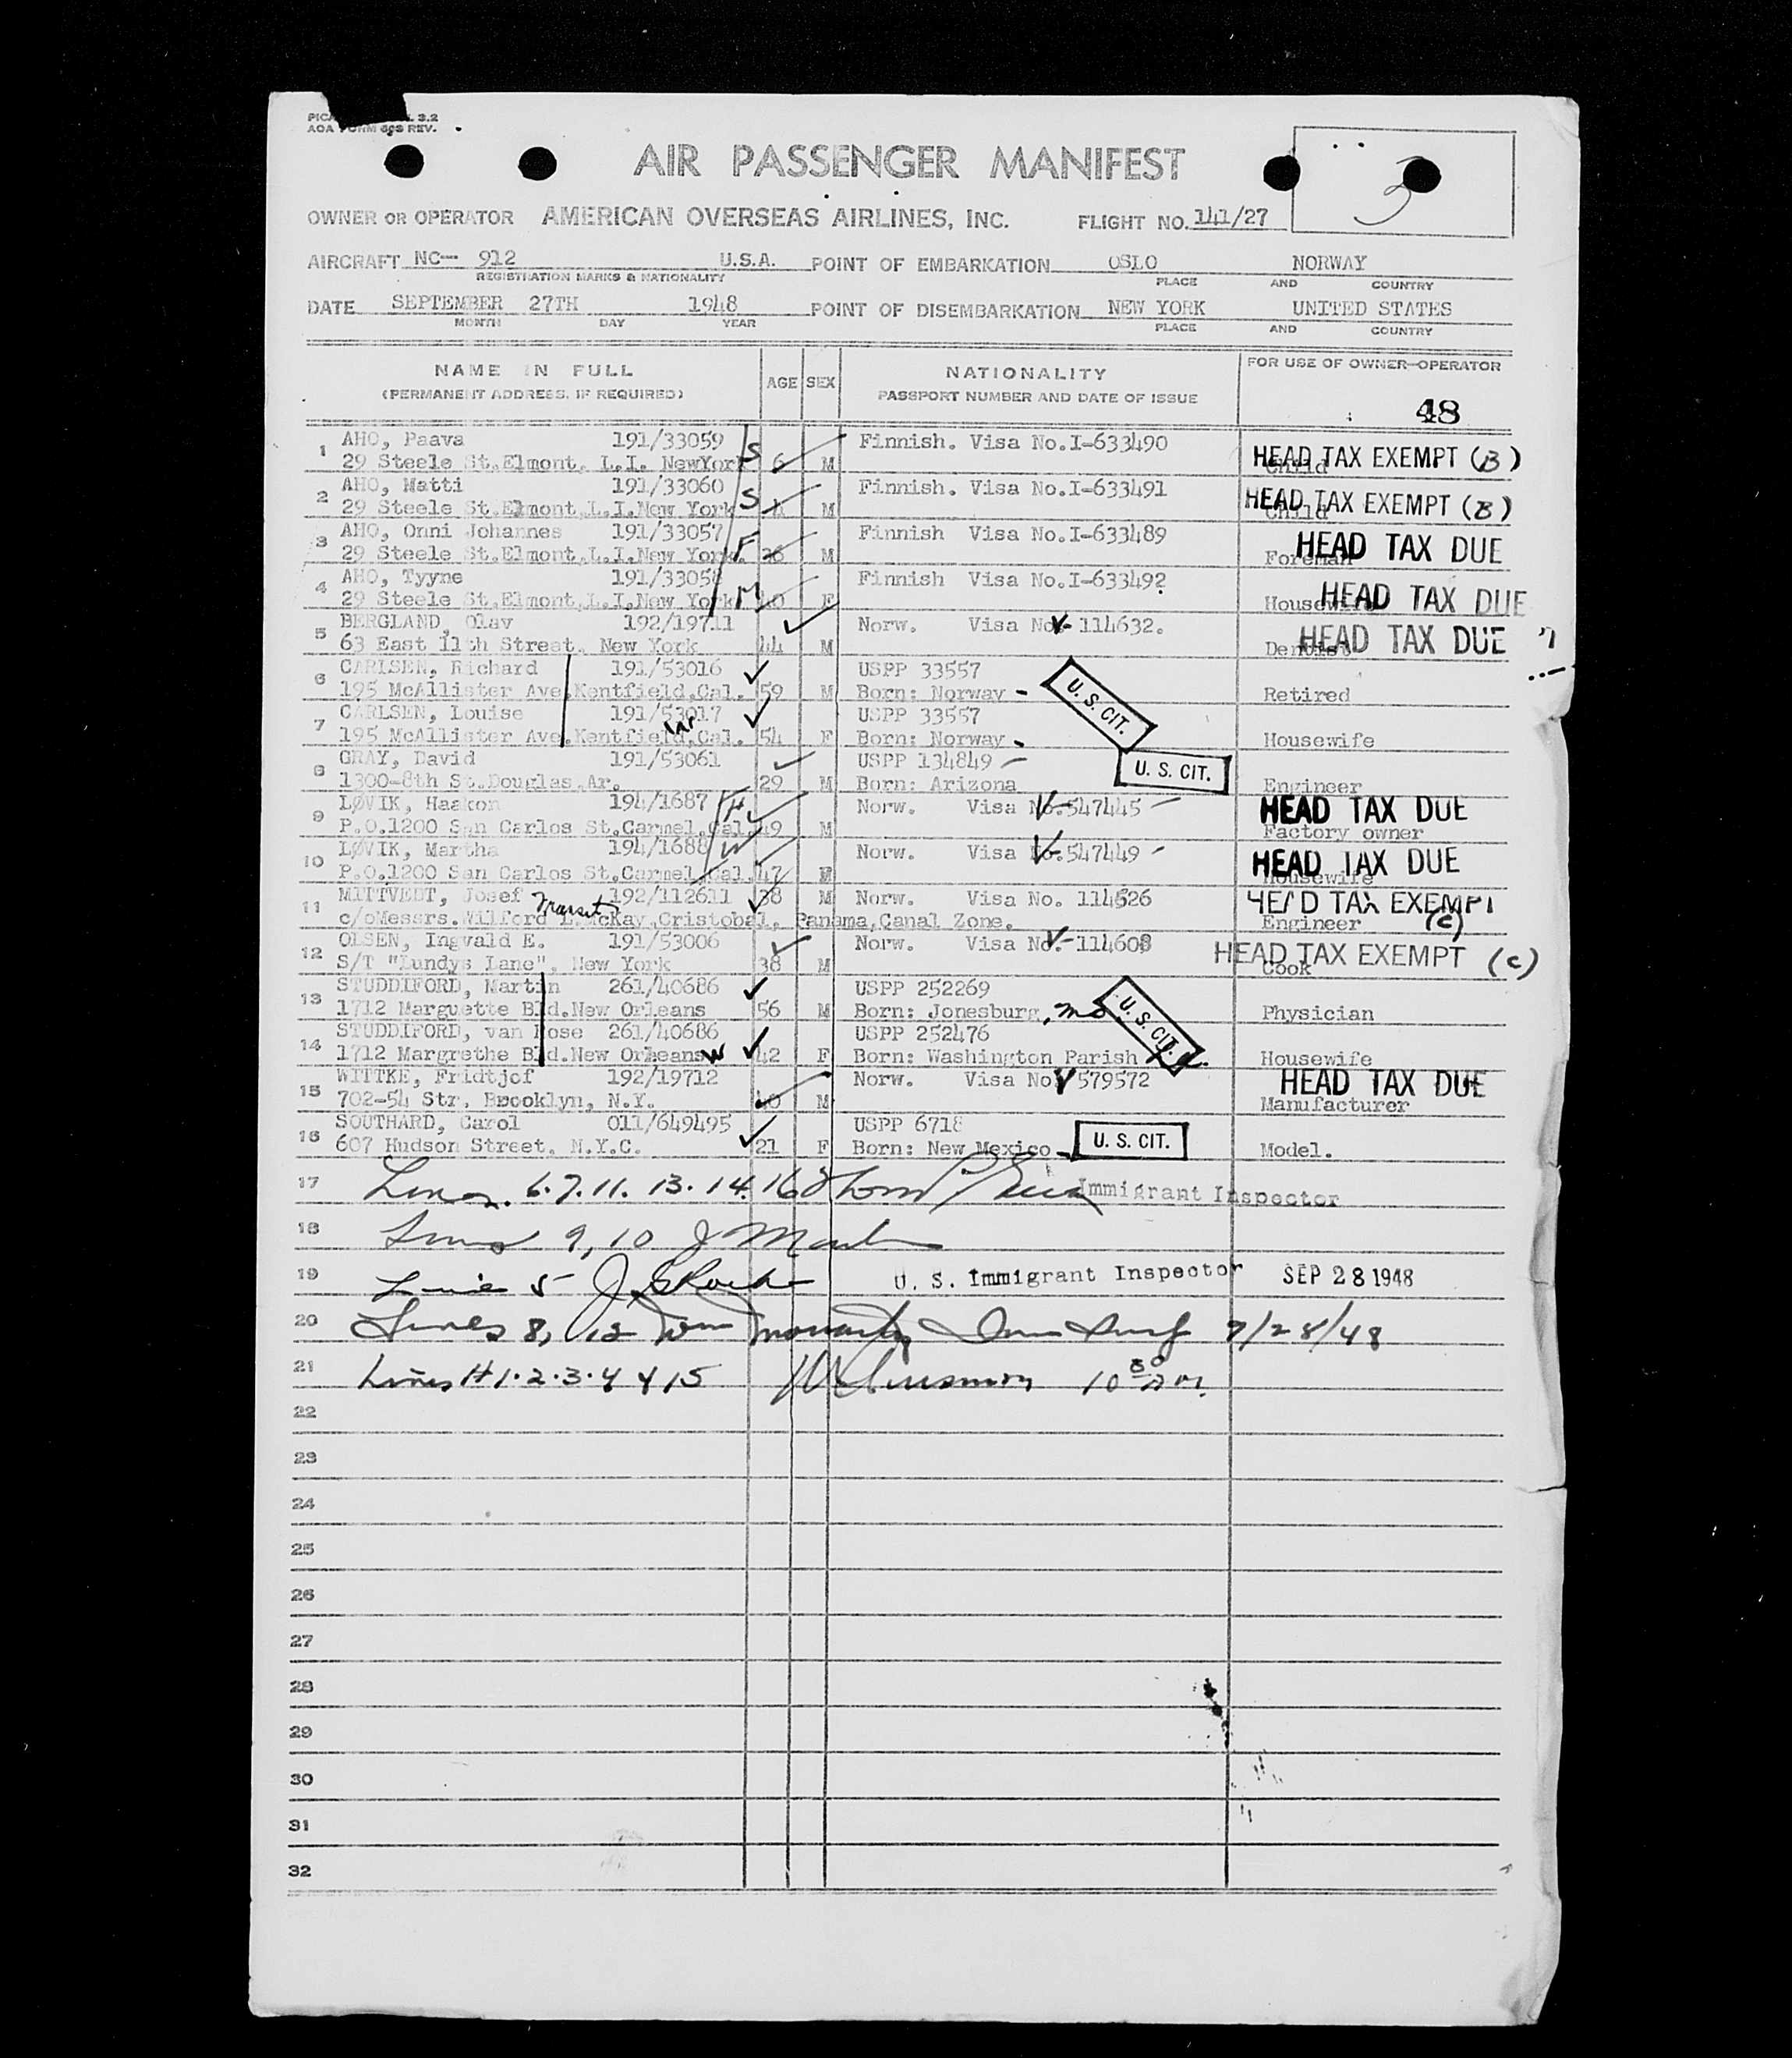 AOA FORM 608 REV.
3.2
AIR PASSENGER MANIFEST
3
OWNER OR OPERATOR AMERICAN OVERSEAS AIRLINES, INC. FLIGHT NO. 141/27
AIRCRAFT NC— 912 U.S.A. POINT OF EMBARKATION OSLO NORWAY
REGISTRATION MARKS & NATIONALITY PLACE AND COUNTRY
DATE SEPTEMBER 27TH 1948 POINT OF DISEMBARKATION NEW YORK UNITED STATES
MONTH DAY YEAR PLACE AND COUNTRY
NAME IN FULL AGE SEX NATIONALITY FOR USE OF OWNER-OPERATOR
(PERMANENT ADDRESS, IF REQUIRED) PASSPORT NUMBER AND DATE OF ISSUE
48
1 AHO, Paava 191/33059 S Finnish. Visa No.I-633490 HEAD TAX EXEMPT (B)
29 Steele St.Elmont, L.I. NewYork 6 M Child
2 AHO, Matti 191/33060 S Finnish. Visa No.I-633491 HEAD TAX EXEMPT (B)
29 Steele St.Elmont,L.I.New York M Child
3 AHO, Onni Johannes 191/33057 F Finnish Visa No.I-633489 HEAD TAX DUE
29 Steele St.Elmont,L.I.New York. 36 M Foreman
4 AHO, Tyyne 191/33058 M Finnish Visa No.I-633492 HEAD TAX DUE
29 Steele St.Elmont,L.I.New York 40 F Housewife
5 BERGLAND, Olav 192/19711 Norw. Visa No. 114632. HEAD TAX DUE
63 East 11th Street, New York 44 M Dentist
6 CARLSEN, Richard 191/53016 USPP 33557
195 McAllister Ave.Kentfield.Cal. 59 M Born: Norway - U. S. CIT. Retired
7 CARLSEN, Louise 191/53017 W USPP 33557
195 McAllister Ave.Kentfield,Cal. 54 F Born: Norway - Housewife
8 GRAY, David 191/53061 USPP 134849 U. S. CIT.
1300-8th St.Douglas,Ar. 29 M Born: Arizona Engineer
9 LØVIK, Haakon 194/1687 H Norw. Visa No.547445 HEAD TAX DUE
P.O.1200 San Carlos St.Carmel,Cal. 49 M Factory owner
10 LØVIK, Martha 194/1688 W Norw. Visa No.547449 HEAD TAX DUE
P.O.1200 San Carlos St.Carmel,Cal. 47 Housewife
11 MITTVEDT, Josef Transit 192/112611 38 M Norw. Visa No. 114626 HEAD TAX EXEMPT (C)
c/oMessrs.Wilford L.McKay,Cristobal, Panama,Canal Zone. Engineer
12 OLSEN, Ingvald E. 191/53006 Norw. Visa No. 114608 HEAD TAX EXEMPT (C)
S/T "Lundys Lane", New York 38 M Cook
13 STUDDIFORD, Martin 261/40686 USPP 252269
1712 Marguette Bld.New Orleans 56 M Born: Jonesburg, Mo. U. S. CIT. Physician
14 STUDDIFORD, van Rose 261/40686 USPP 252476
1712 Margrethe Bld.New Orleans W 42 F Born: Washington Parish Housewife
15 WITTKE, Fridtjof 192/19712 Norw. Visa No 579572 HEAD TAX DUE
702-54 Str, Brooklyn, N.Y. 40 M Manufacturer
16 SOUTHARD, Carol 011/649495 USPP 6718
607 Hudson Street, N.Y.C. 21 F Born: New Mexico U. S. CIT. Model.
17 Lines 6.7.11.13.14.16 Immigrant Inspector
18 Lines 9, 10
19 Line 5 U. S. Immigrant Inspector SEP 28 1948
20 Lines 8, 12 9/28/48
21 Lines # 1.2.3.4 & 15 10 30 AM.
22
23
24
25
26
27
28
29
30
31
32